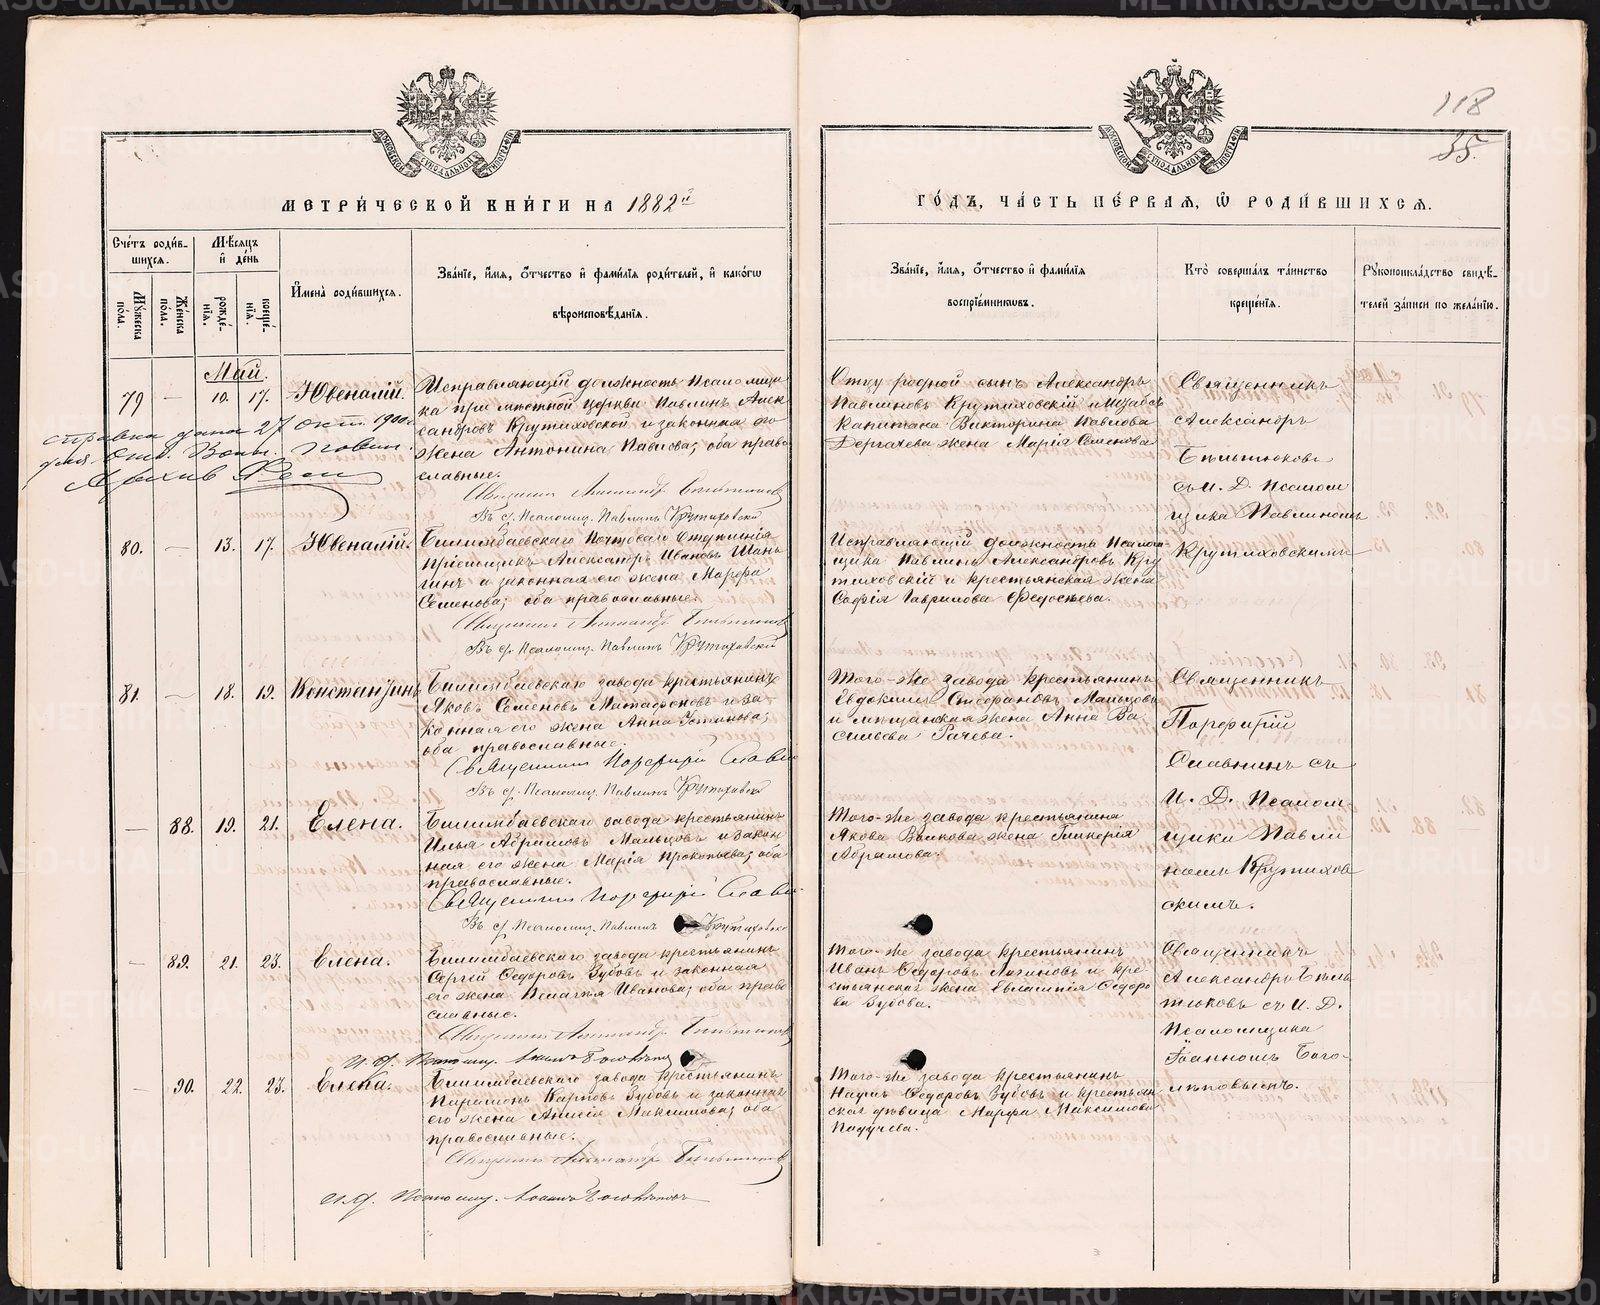 118
35.
МОСКОВСКОЙ СѴНОДАЛЬНОЙ ТИПОГРАФІИ
МОСКОВСКОЙ СѴНОДАЛЬНОЙ ТИПОГРАФІИ
МЕТРИ́ЧЕСКОЙ КНИ́ГИ НА 1882й
ГО́ДЪ, ЧА́СТЬ ПЕ́РВАЯ, Ѡ҆ РОДИ́ВШИХСЯ.
Сче́тъ роди́в-
шихся.
Мꙋ́жеска по́ла.
Же́нска по́ла.
Мѣ́сяцъ и҆ де́нь
рожде́-нїя.
креще́-нїя.
И҆мена̀ роди́вшихся.
Зва́нїе, и҆́мя, ѻ҆́тчество и҆ фами́лїя роди́телей, и҆ како́гѡ
вѣроисповѣ́данїя.
Зва́нїе, и҆́мя, ѻ҆́тчество и҆ фами́лїя
воспрїе́мниковъ.
Кто̀ соверша́лъ та́инство
креще́нїя.
Рꙋкоприкла́дство свидѣ́-
телей за́писи по жела́нїю.
Май.
79 — 10. 17. Ювеналій.
Исправляющій должность Псаломщи-
ка при мѣстной церкви Павлинъ Алек-
сандровъ Крутиховской и законная его
жена Антонина Павлова; оба право-
славные.
Священникъ Александр Бельтюков
Въ д. Псаломщ. Павлинъ Крутиховскій
справка дана 27 окт. 1900 г.
для отб. Воин. повин.
Отцу родной сынъ Александръ
Павлиновъ Крутиховскій и Штабсъ
Капитана Викторина Павлова
Дергачева жена Марія Семенова
Священникъ
Александръ
Бѣльтюковъ
съ И. Д. Псалом
щика Павлиномъ
Крутиховскимъ
80. — 13. 17. Ювеналій.
Билимбаевскаго Почтоваго Отдѣленія
Пріемщикъ Александръ Ивановъ Шань-
гинъ и законная его жена Марфа
Семенова; оба православные.
Священникъ Александр Бельтюков
Въ д. Псаломщ. Павлинъ Крутиховскій
Исправляющій должность Псалом-
щика Павлинъ Александровъ Кру
тиховскій и крестьянская жена
Софія Гаврилова Федосѣева.
81. — 18. 19. Константинъ
Билимбаевскаго завода крестьянинъ
Яковъ Семеновъ Матафоновъ и за-
конная его жена Анна Устинова;
оба православные.
Священникъ Порфирій Славнинъ
Въ д. Псаломщ. Павлинъ Крутиховскій
Того-же завода крестьянинъ
Евдокимъ Стефановъ Мальцовъ
и мѣщанская жена Анна Ва
сильева Рачева.
Священникъ
Порфирій
Славнинъ съ
И. Д. Псалом
щика Павли
номъ Крутихов
скимъ.
— 88. 19. 21. Елена.
Билимбаевскаго завода крестьянинъ
Илья Абрамовъ Мальцовъ и закон
ная его жена Марія Прокопьева; оба
православные.
Священникъ Порфирій Славнинъ
Въ д. Псаломщ. Павлинъ Крутиховскій
Того-же завода крестьянина
Якова Волкова жена Гликерія
Абрамова.
— 89. 21. 23. Елена.
Билимбаевскаго завода крестьянинъ
Сергій Ѳедоровъ Зубовъ и законная
его жена Пелагія Иванова; оба право
славные.
Священникъ Александр Бельтюков
И. д. Псаломщ. Іоаннъ Боголѣповъ
Того-же завода крестьянинъ
Иванъ Ѳедоровъ Логиновъ и кре
стьянская жена Евлампія Ѳедоро
ва Зубова.
Священникъ
Александръ Бѣль
тюковъ съ И. Д.
Псаломщика
Іоанномъ Бого-
лѣповымъ.
— 90. 22. 23. Елена.
Билимбаевскаго завода крестьянинъ
Парамонъ Карповъ Зубовъ и законная
его жена Анисія Максимова; оба
православные.
Священникъ Александр Бельтюков
И. д. Псаломщ. Іоаннъ Боголѣповъ
Того-же завода крестьянинъ
Наумъ Ѳедоровъ Зубовъ и крестьян
ская дѣвица Марфа Максимова
Падучева.
METRIKI.GASO-URAL.RU